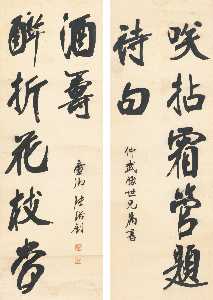 咲拈霜管題
詩句
仲武世兄屬書
醉折花枝當
酒籌